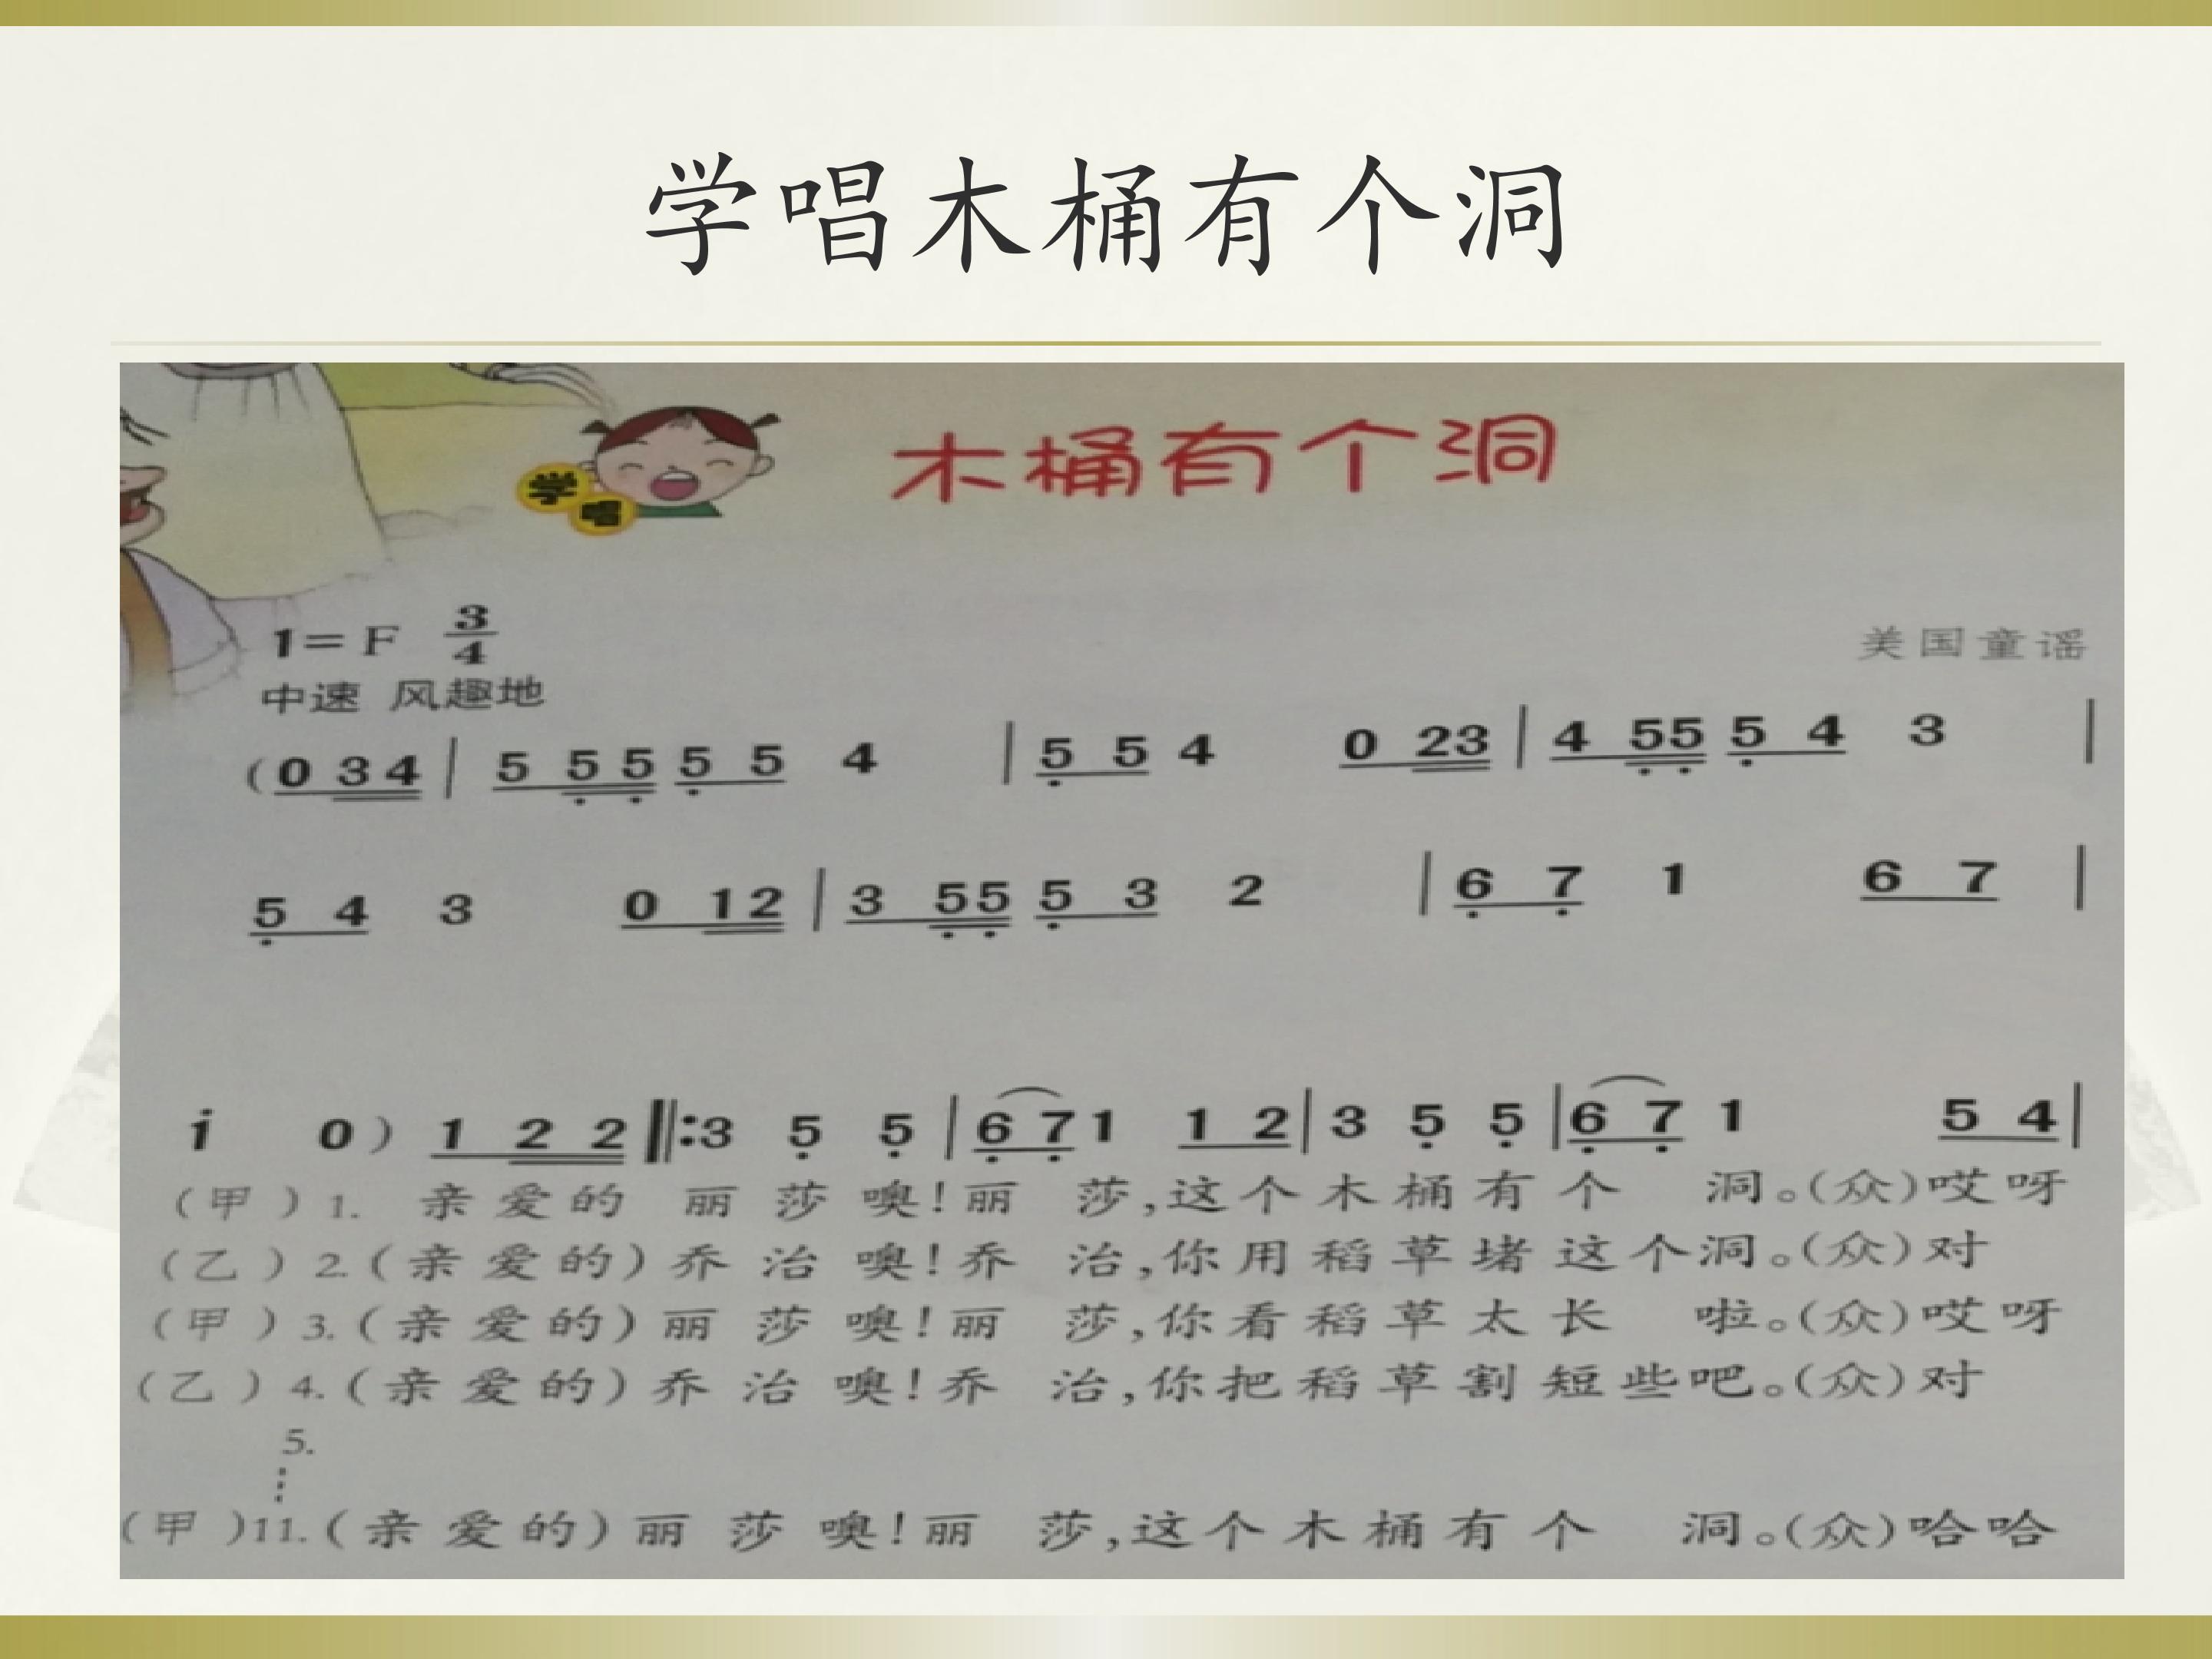 学唱木桶有个洞
木桶有个洞
学
唱
1=F 3/4
美国童谣
中速 风趣地
(0 34 | 5 55 5 5 4 | 5 5 4 0 23 | 4 55 5 4 3 |
5 4 3 0 12 | 3 55 5 3 2 | 6 7 1 6 7 |
i 0) 1 2 2 ‖: 3 5 5 | 6 7 1 1 2 | 3 5 5 | 6 7 1 5 4 |
(甲) 1. 亲爱的 丽莎噢!丽 莎,这个木桶有个 洞。(众)哎呀
(乙) 2.(亲爱的)乔治噢!乔 治,你用稻草堵这个洞。(众)对
(甲) 3.(亲爱的)丽莎噢!丽 莎,你看稻草太长 啦。(众)哎呀
(乙) 4.(亲爱的)乔治噢!乔 治,你把稻草割短些吧。(众)对
5.
⋮
(甲)11.(亲爱的)丽莎噢!丽 莎,这个木桶有个 洞。(众)哈哈